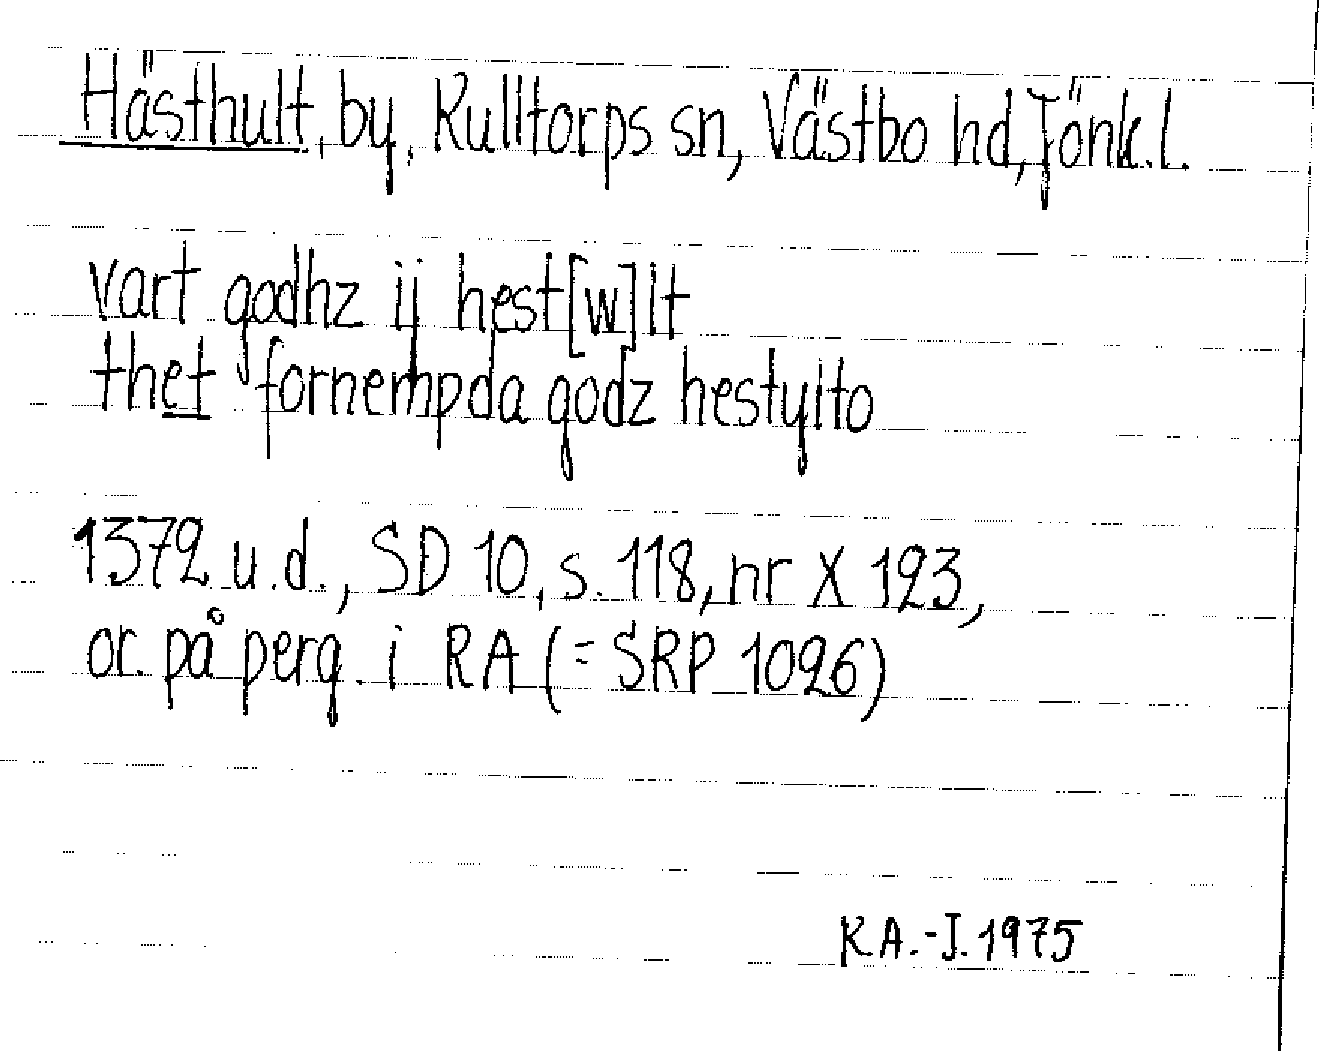 Hästhult, by, Kulltorps sn, Västbo hd, Jönk. l.
vart godhz ij hest[w]lt
thet fornempda godz hestylto
1372 u.d., SD 10, s. 118, nr X 123,
or. på perg. i RA (= SRP 1026)
K A.-J. 1975